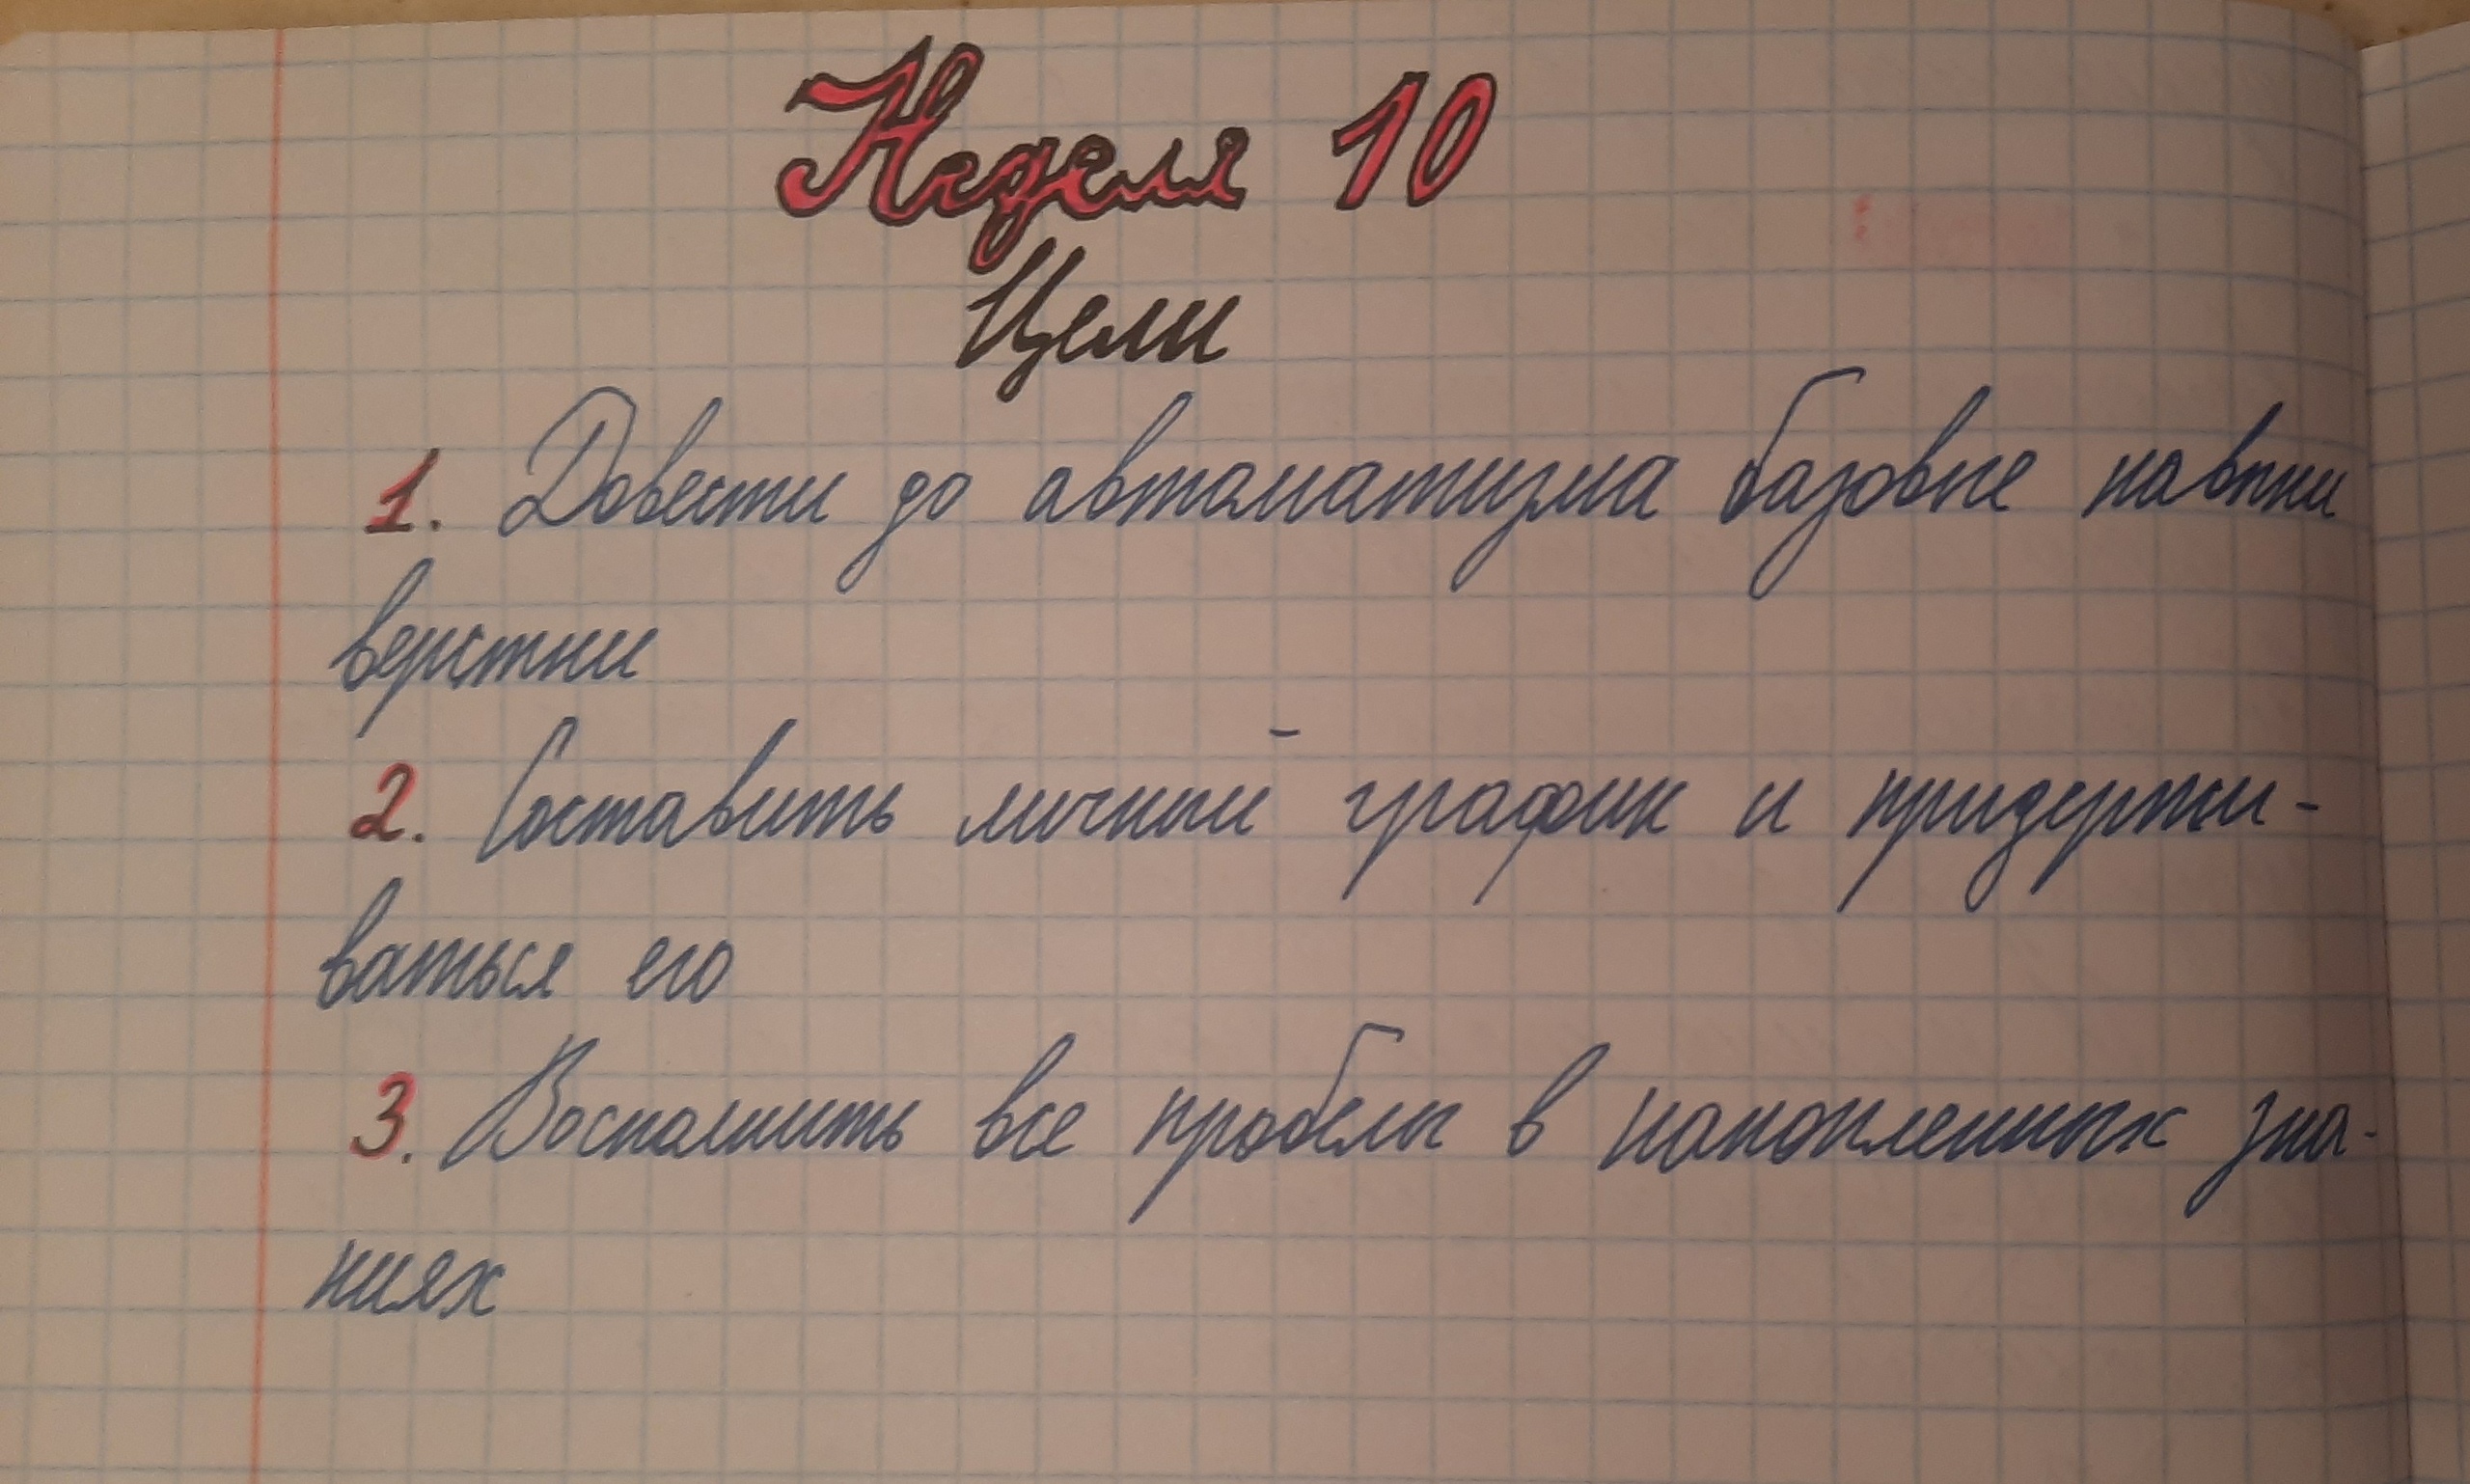 Неделя 10
Цели
1. Довести до автоматизма базовые навыки
верстки
2. Составить личный график и придержи-
ваться его
3. Восполнить все пробелы в накопленных зна-
ниях